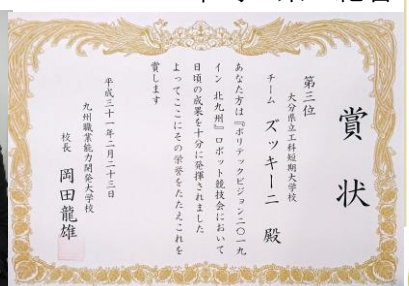 賞状
第三位
大分県立工科短期大学校
チーム ズッキーニ 殿
あなた方は『ポリテックビジョン二〇一九
イン 北九州』ロボット競技会において
日頃の成果を十分に発揮されました
よってここにその栄誉をたたえこれを
賞します
平成三十一年二月二十三日
九州職業能力開発大学校
校長 岡田龍雄